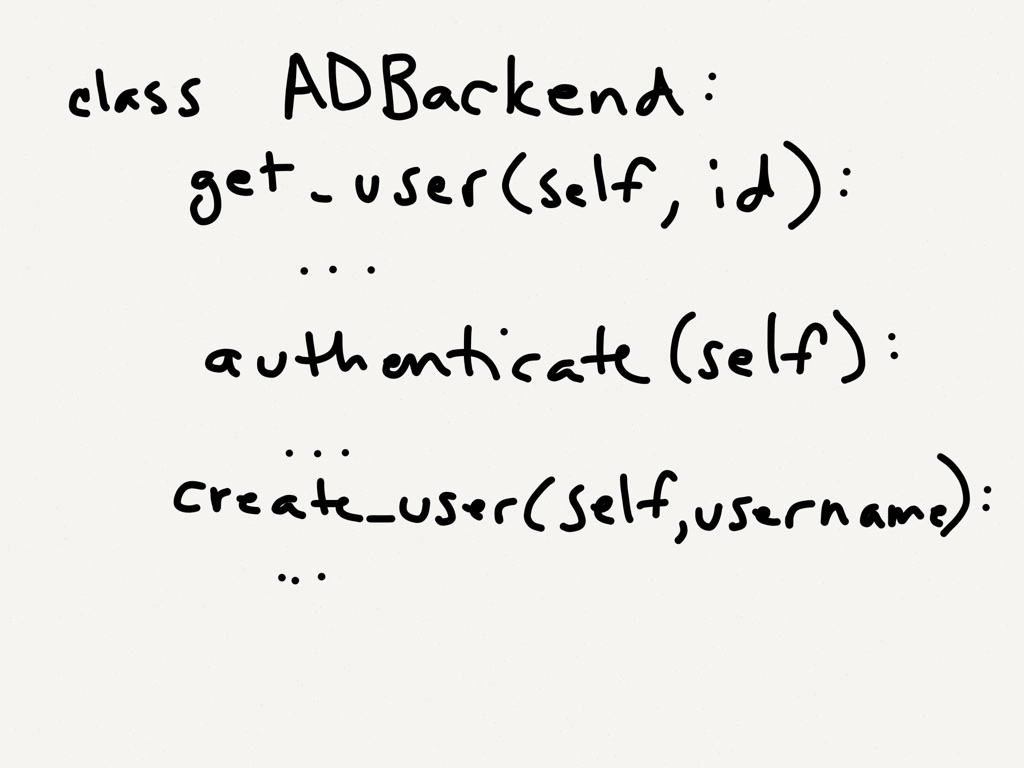 class ADBackend:
get_user(self, id):
...
authenticate(self):
...
create_user(self,username):
...